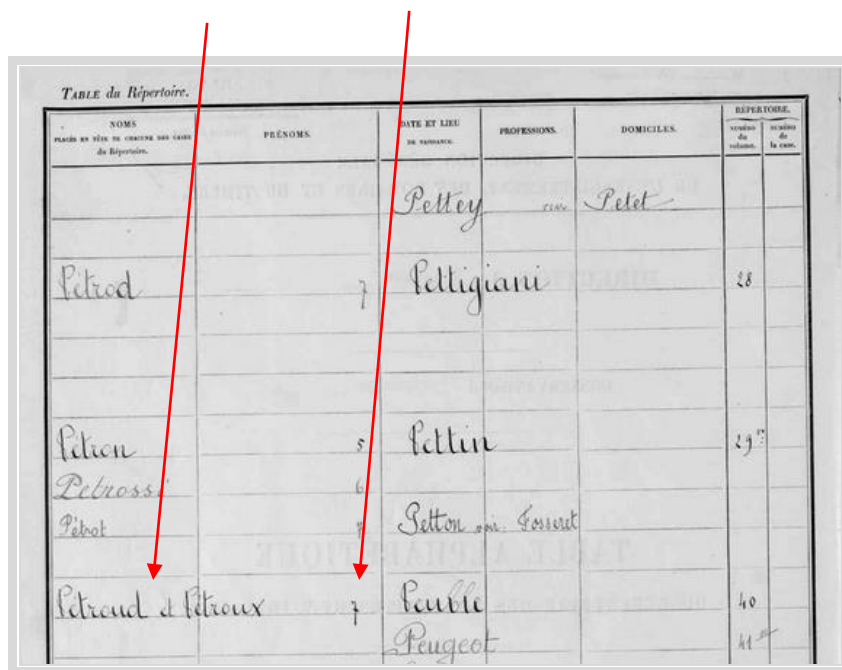 TABLE du Répertoire.
NOMS
PLACÉS EN TÊTE DE CHACUNE DES CASES
du Répertoire.
PRÉNOMS.
DATE ET LIEU
DE NAISSANCE.
PROFESSIONS.
DOMICILES.
RÉPERTOIRE.
NUMÉRO
du
volume.
NUMÉRO
de
la case.
Pettey voir Petet
Pétrod 7 Pettigiani 28
Pétron 5 Pettin 29
Petrossi 6
Pétrot 7 Petton voir Fosseret
Pétroud et Pétroux 7 40
Peugeot 41